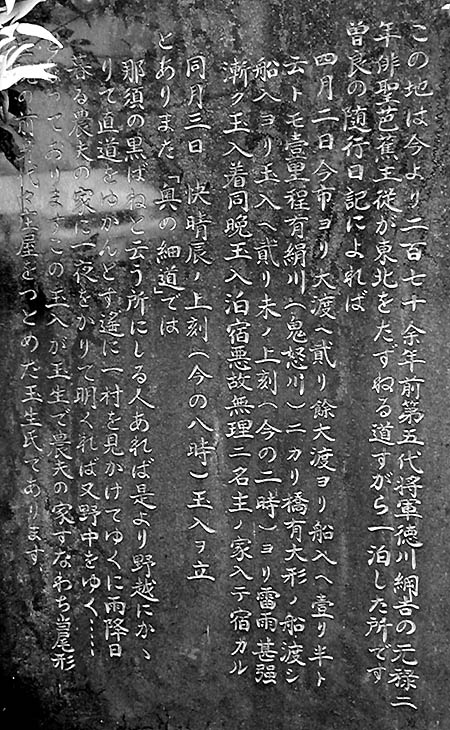 この地は今より二百七十余年前第五代将軍徳川綱吉の元禄二
年俳聖芭蕉主従が東北をたずねる道すがら一泊した所です
曽良の随行日記によれば
四月二日今市ヨリ大渡ヘ貳リ餘大渡ヨリ船入ヘ壹リ半ト
云トモ壹里程有絹川(鬼怒川)ニカリ橋有大形ノ船渡シ
船入ヨリ玉入ヘ貳リ未ノ上刻(今の二時)ヨリ雷雨甚强
漸ク玉入着同晩玉入泊宿悪故無理ニ名主ノ家入テ宿カル
同月三日 快晴辰ノ上刻(今の八時)玉入ヲ立
とありまた「奥の細道」では
那須の黒ばねと云う所にしる人あれば是より野越にかゝ
りて直道をゆかんとす遙に一村を見かけてゆくに雨降日
暮る農夫の家に一夜をかりて明くれば又野中をゆく‥‥
っておりますこの玉入が玉生で農夫の家すなわち当尾形
の前 代々 屋をつとめた玉生氏であります